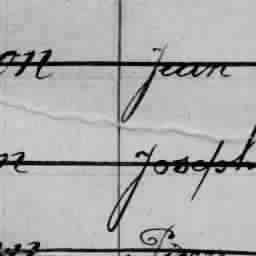 on Jean
n Joseph